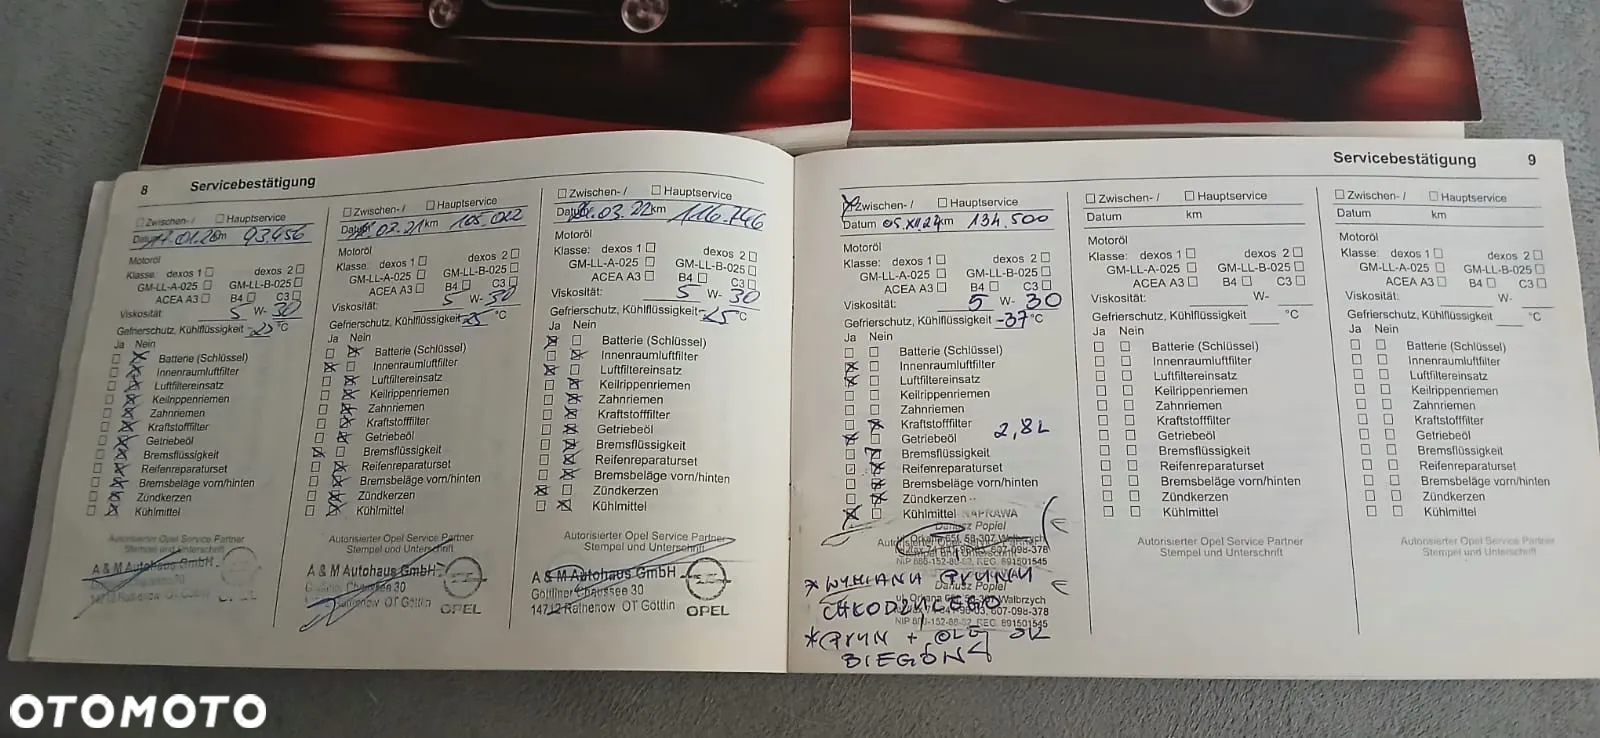 8 Servicebestätigung
Zwischen- / Hauptservice
Datum .01.20 km 93.456
Motoröl
Klasse: dexos 1 dexos 2
GM-LL-A-025 GM-LL-B-025
ACEA A3 B4 C3
Viskosität: 5 W- 30
Gefrierschutz, Kühlflüssigkeit -25 °C
Ja Nein
Batterie (Schlüssel)
Innenraumluftfilter
Luftfiltereinsatz
Keilrippenriemen
Zahnriemen
Kraftstofffilter
Getriebeöl
Bremsflüssigkeit
Reifenreparaturset
Bremsbeläge vorn/hinten
Zündkerzen
Kühlmittel
Autorisierter Opel Service Partner
Stempel und Unterschrift
A & M Autohaus GmbH
14712 Rathenow OT Göttlin
OPEL
Zwischen- / Hauptservice
Datum .02.21 km 105.022
Motoröl
Klasse: dexos 1 dexos 2
GM-LL-A-025 GM-LL-B-025
ACEA A3 B4 C3
Viskosität: 5 W- 30
Gefrierschutz, Kühlflüssigkeit -25 °C
Ja Nein
Batterie (Schlüssel)
Innenraumluftfilter
Luftfiltereinsatz
Keilrippenriemen
Zahnriemen
Kraftstofffilter
Getriebeöl
Bremsflüssigkeit
Reifenreparaturset
Bremsbeläge vorn/hinten
Zündkerzen
Kühlmittel
Autorisierter Opel Service Partner
Stempel und Unterschrift
A & M Autohaus GmbH
Göttliner Chaussee 30
Rathenow OT Göttlin
OPEL
Zwischen- / Hauptservice
Datum .03.22 km 116.746
Motoröl
Klasse: dexos 1 dexos 2
GM-LL-A-025 GM-LL-B-025
ACEA A3 B4 C3
Viskosität: 5 W- 30
Gefrierschutz, Kühlflüssigkeit -25 °C
Ja Nein
Batterie (Schlüssel)
Innenraumluftfilter
Luftfiltereinsatz
Keilrippenriemen
Zahnriemen
Kraftstofffilter
Getriebeöl
Bremsflüssigkeit
Reifenreparaturset
Bremsbeläge vorn/hinten
Zündkerzen
Kühlmittel
Autorisierter Opel Service Partner
Stempel und Unterschrift
A & M Autohaus GmbH
Göttliner Chaussee 30
14712 Rathenow OT Göttlin
OPEL
Servicebestätigung 9
Zwischen- / Hauptservice
Datum 05.XII.24 km 134.500
Motoröl
Klasse: dexos 1 dexos 2
GM-LL-A-025 GM-LL-B-025
ACEA A3 B4 C3
Viskosität: 5 W- 30
Gefrierschutz, Kühlflüssigkeit -37 °C
Ja Nein
Batterie (Schlüssel)
Innenraumluftfilter
Luftfiltereinsatz
Keilrippenriemen
Zahnriemen
Kraftstofffilter
Getriebeöl 2,8L
Bremsflüssigkeit
Reifenreparaturset
Bremsbeläge vorn/hinten
Zündkerzen
Kühlmittel NAPRAWA
Dariusz Popiel
Autorisierter Opel Service Partner
58-307 Wałbrzych
607-098-378
REG. 891501545
* WYMIANA PŁYNU
Dariusz Popiel
CHŁODZĄCEGO
Wałbrzych
607-098-378
REG. 891501545
* PŁYN + OLEJ OK
BIEGÓW
Zwischen- / Hauptservice
Datum km
Motoröl
Klasse: dexos 1 dexos 2
GM-LL-A-025 GM-LL-B-025
ACEA A3 B4 C3
Viskosität: W-
Gefrierschutz, Kühlflüssigkeit °C
Ja Nein
Batterie (Schlüssel)
Innenraumluftfilter
Luftfiltereinsatz
Keilrippenriemen
Zahnriemen
Kraftstofffilter
Getriebeöl
Bremsflüssigkeit
Reifenreparaturset
Bremsbeläge vorn/hinten
Zündkerzen
Kühlmittel
Autorisierter Opel Service Partner
Stempel und Unterschrift
Zwischen- / Hauptservice
Datum km
Motoröl
Klasse: dexos 1 dexos 2
GM-LL-A-025 GM-LL-B-025
ACEA A3 B4 C3
Viskosität: W-
Gefrierschutz, Kühlflüssigkeit °C
Ja Nein
Batterie (Schlüssel)
Innenraumluftfilter
Luftfiltereinsatz
Keilrippenriemen
Zahnriemen
Kraftstofffilter
Getriebeöl
Bremsflüssigkeit
Reifenreparaturset
Bremsbeläge vorn/hinten
Zündkerzen
Kühlmittel
Autorisierter Opel Service Partner
Stempel und Unterschrift
OTOMOTO